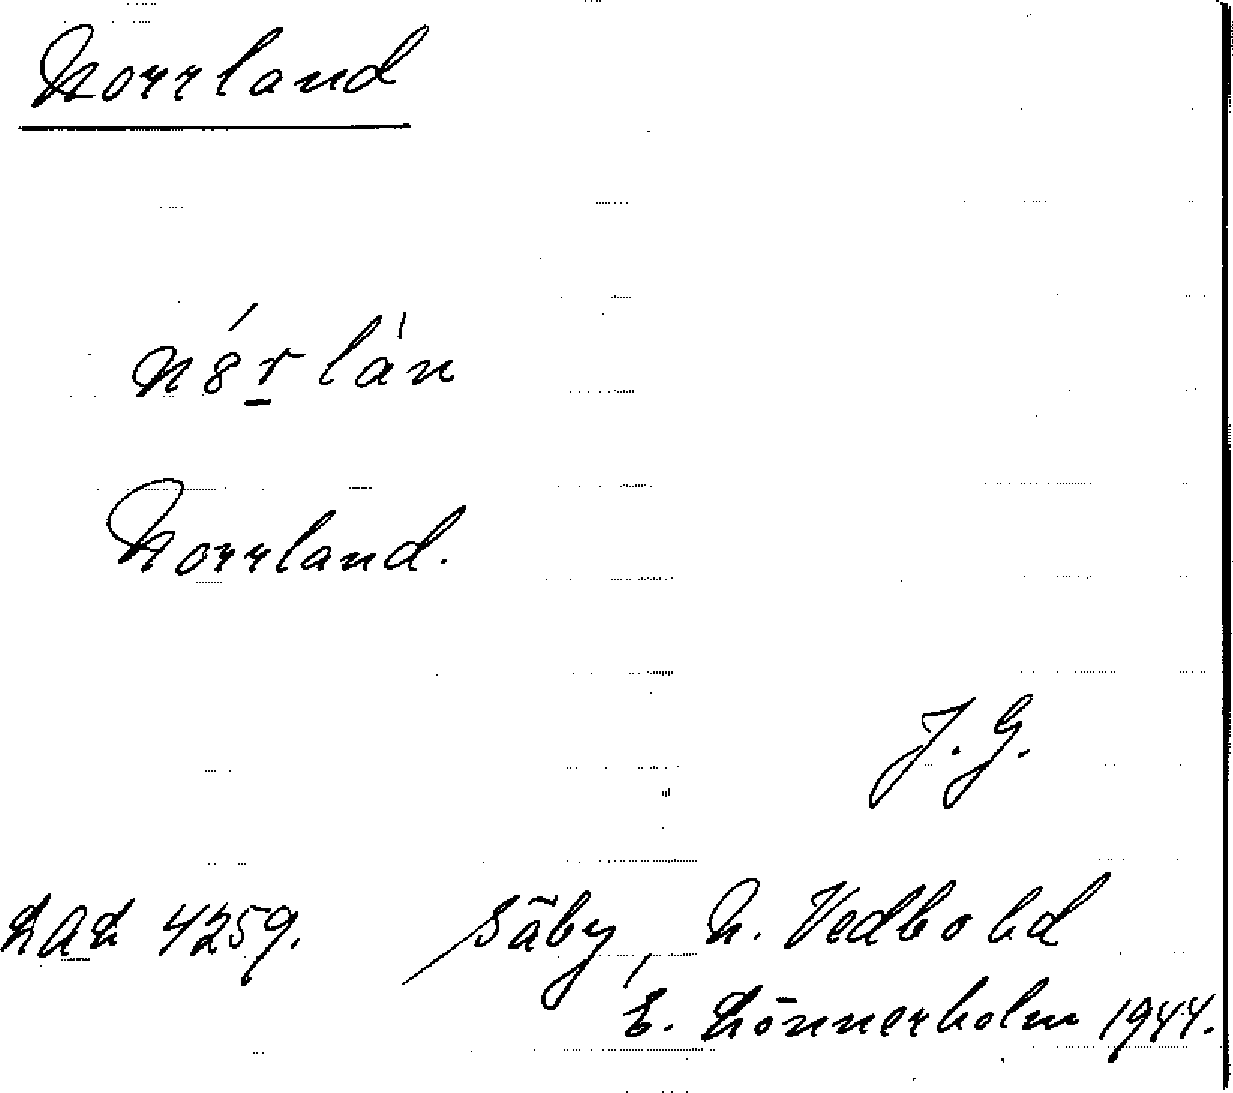 Norrland
n8́r̲lán
Norrland.
J. G.
LAL 4259. Säby, N. Vedbo hd
E. Lönnerholm 1944.